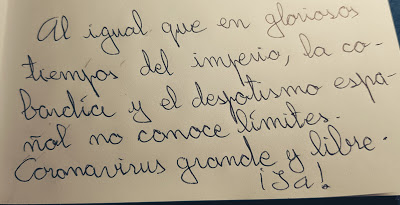 Al igual que en gloriosos
tiempos del imperio, la co-
bardía y el despotismo espa-
ñol no conoce límites.
Coronavirus grande y libre.
¡Ja!